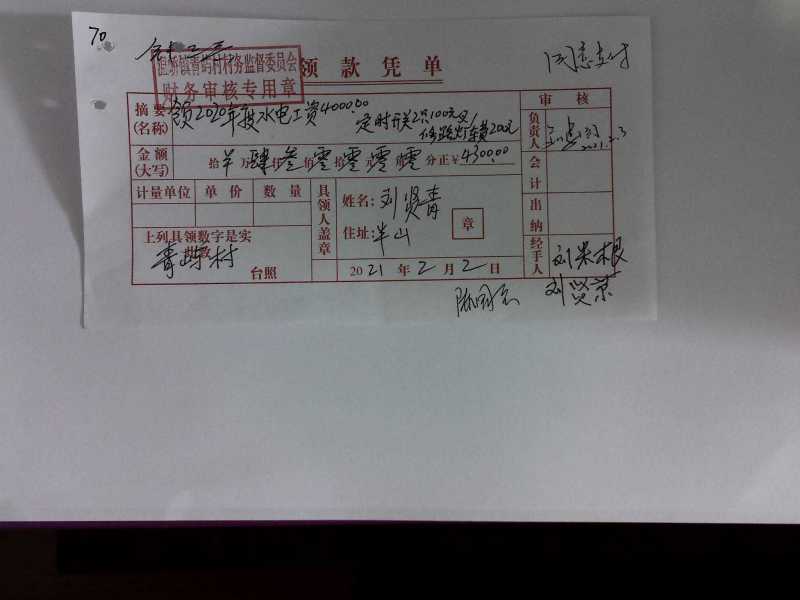 70
同意支付
村务监督委员会
财务审核专用章
领款凭单
摘要(名称) 领2020年度水电工资4000.00
定时开关2只100元又
修路灯车费200元
审核
负责人 2021.2.3
金额(大写) 拾 万肆仟叁佰零拾零元零角零分正¥4300.00
会计
计量单位 单价 数量
具领人盖章
姓名:刘贤青
住址:半山
章
出纳
上列具领数字是实
青屿村
台照
2021年2月2日
经手人 刘米根
刘贤京